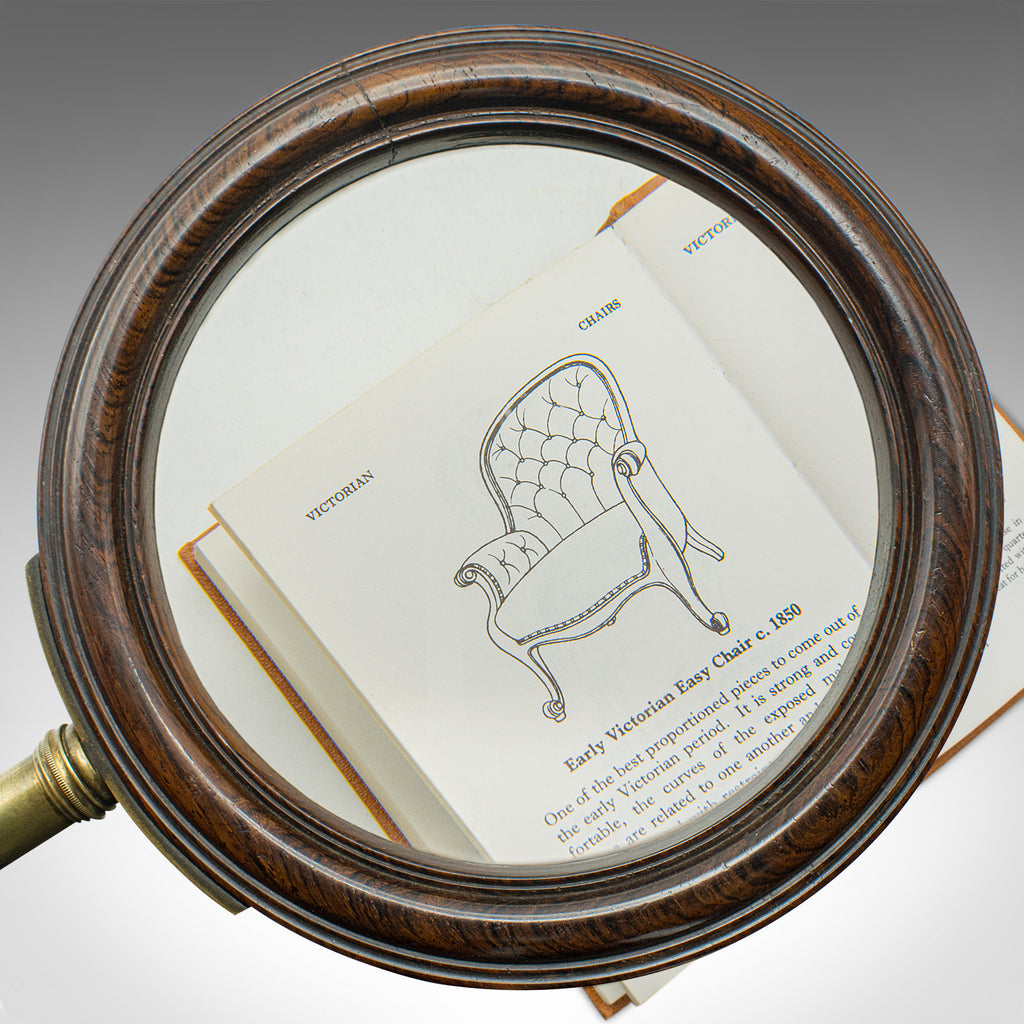 VICTORIAN
CHAIRS
Early Victorian Easy Chair c. 1850
One of the best proportioned pieces to come out of
the early Victorian period. It is strong and
fortable, the curves of the exposed
are related to one another
with
in
quarte
for